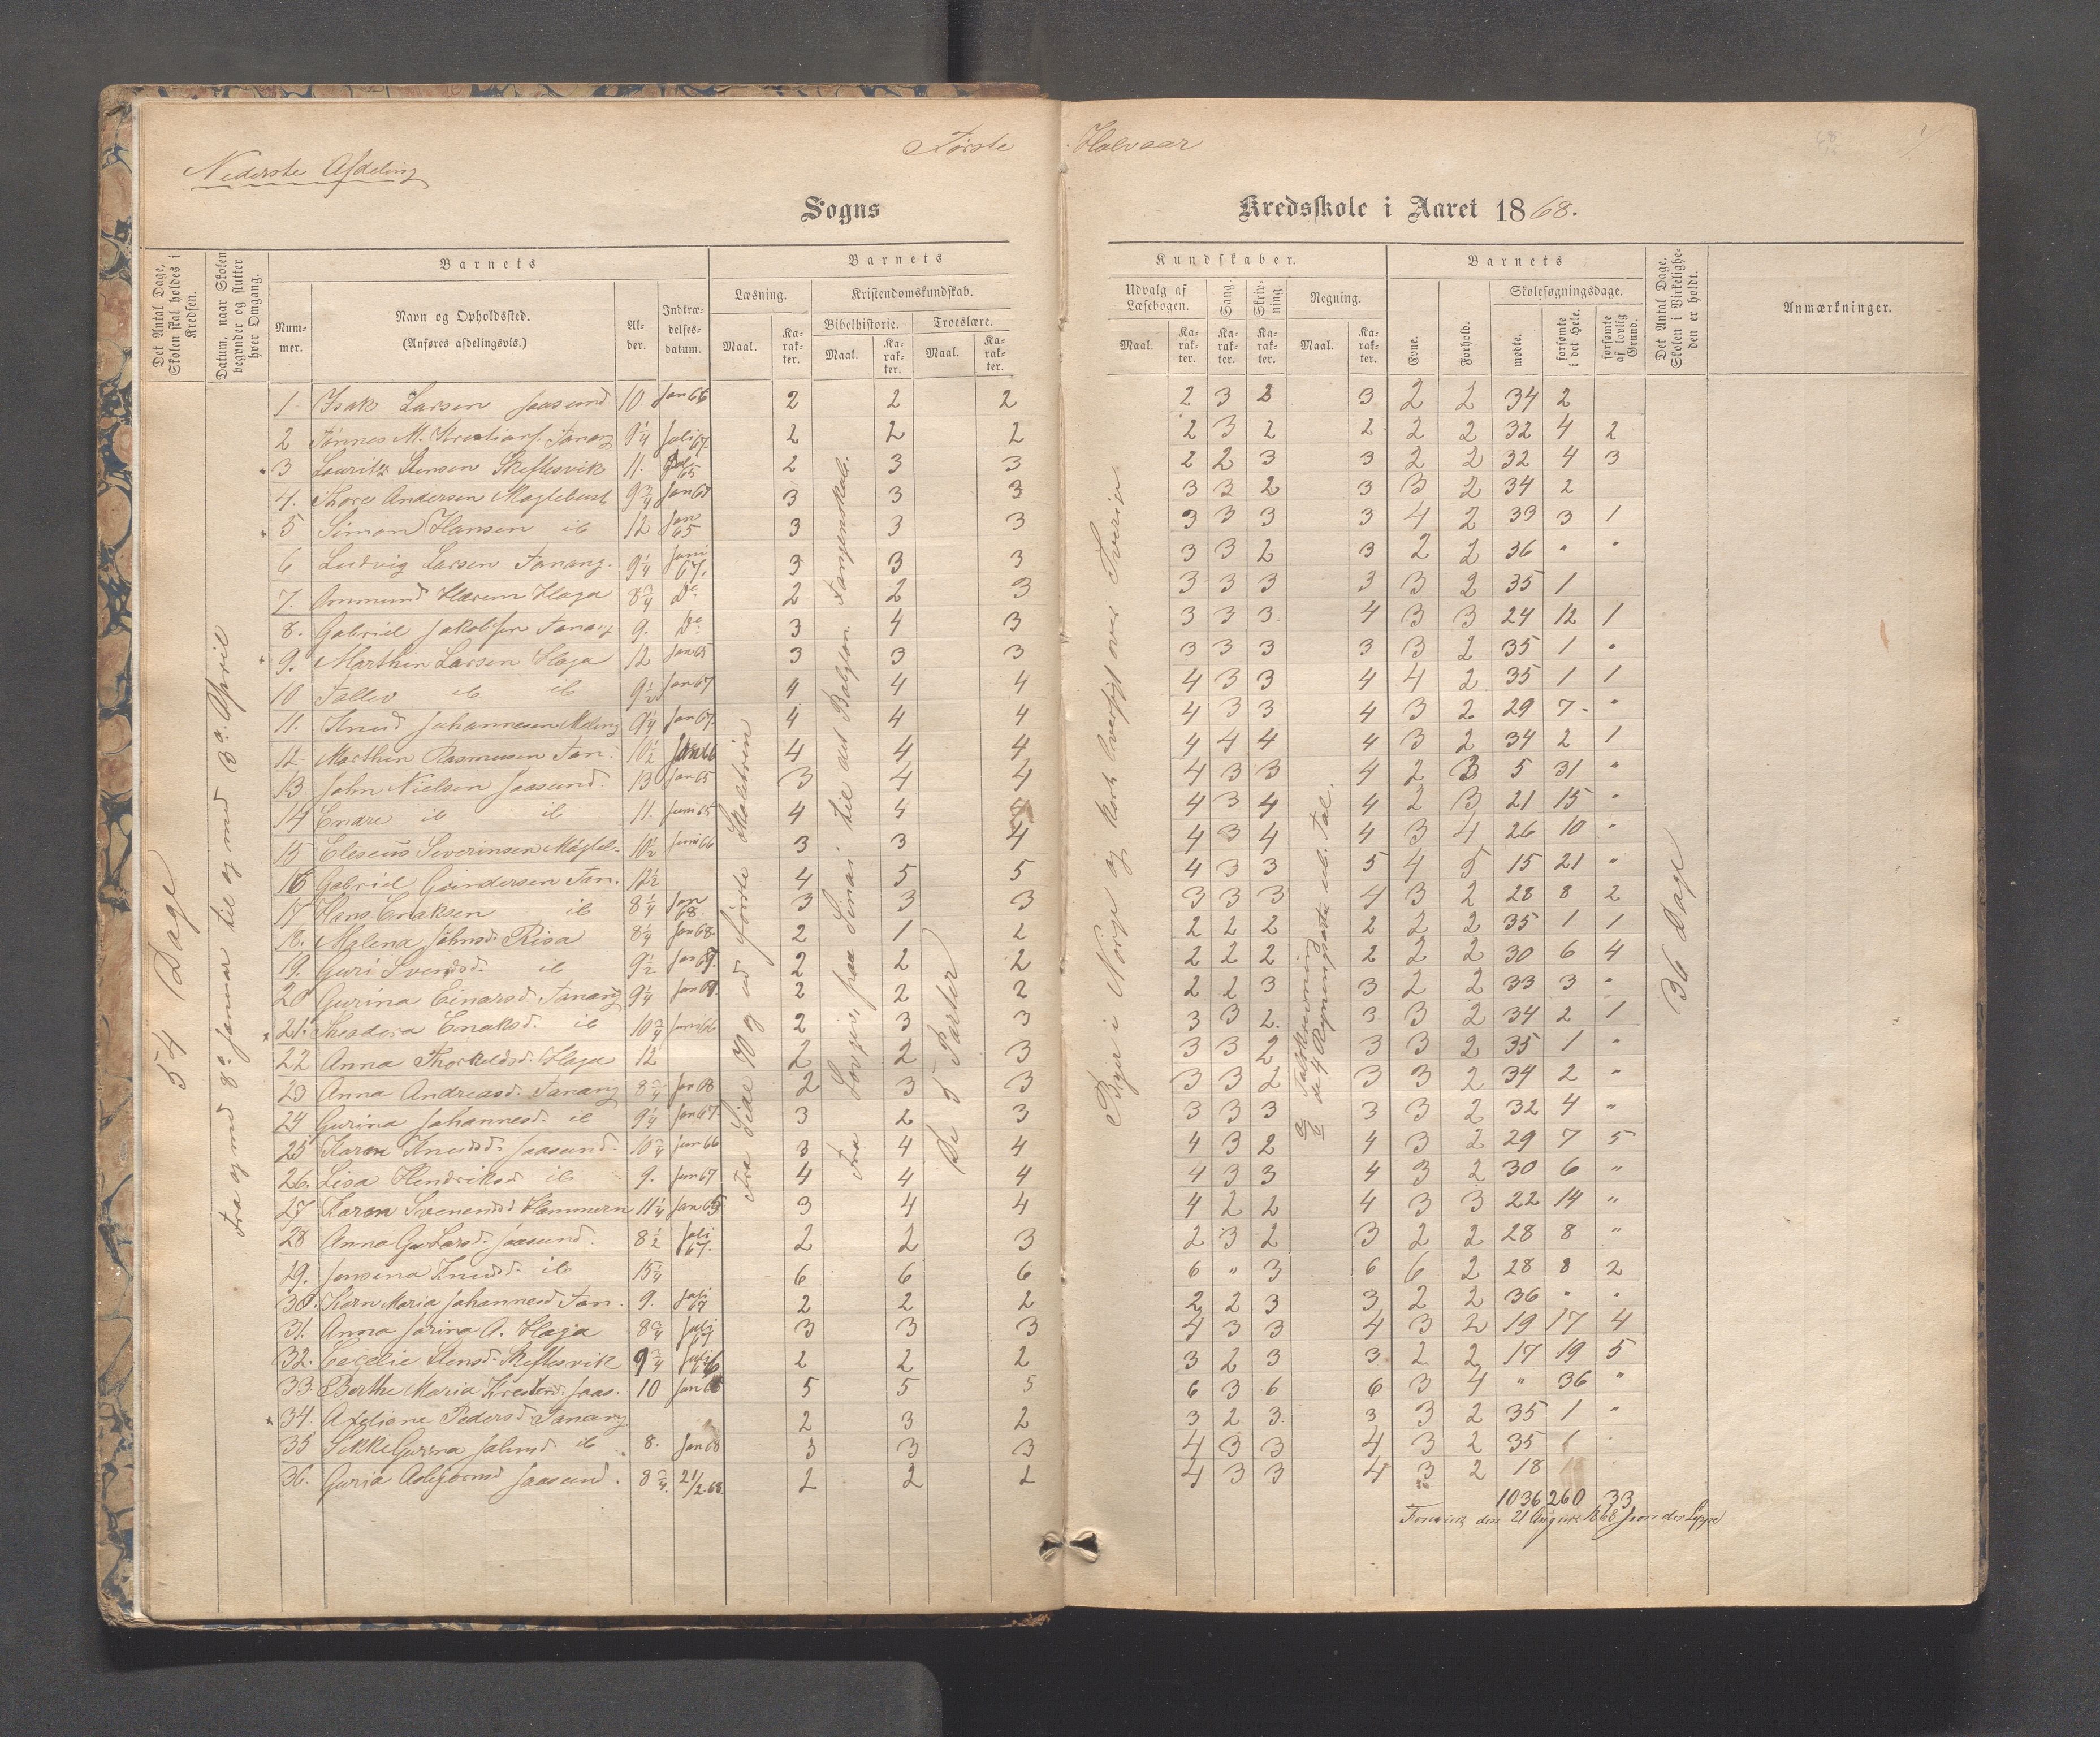 Nederste Afdeling
Første Halvaar
Sogns Kredsskole i Aaret 1868.
Det Antal Dage, Skolen skal holdes i Kredsen.
Datum, naar Skolen begynder og slutter hver Omgang.
Barnets
Nummer.
Navn og Opholdssted.
(Anføres afdelingsvis.)
Alder.
Indtrædelsesdatum.
Barnets Kundskaber.
Læsning.
Kristendomskundskab.
Bibelhistorie. Troeslære.
Maal. Karakter. Maal. Karakter. Maal. Karakter.
Udvalg af Læsebogen.
Sang.
Skrivning.
Regning.
Maal. Karakter. Karakter. Karakter. Maal. Karakter.
Barnets
Evne.
Forhold.
Skolesøgningsdage.
mødte.
forsømte i det Hele.
forsømte af lovlig Grund.
Det Antal Dage, Skolen i Virkeligheden er holdt.
Anmærkninger.
54 Dage
Fra og med 8de Januar til og med 3de April
Fra Side 70 og ud første Skoletrin
Fra Lovgiv. paa Sinai til det Babylon. Fangenskab.
De 5 Parter
Byer i Norge og kort Oversigt over Sverige
Talskrivning
de 4 Regningsarter ub. Tal.
36 Dage
1 Isak Larsen Jaasund 10 Jan 66 2 2 2 2 3 2 3 2 2 34 2
2 Tønnes M. Kristians. Tanang 9 1/4 Juli 67. 2 2 2 2 3 2 2 2 2 32 4 2
3 Lauritz Stensen Skeftesvik 11. Juli 65 2 3 3 2 2 3 3 2 2 32 4 3
4. Thore Andersen Myglebust 9 3/4 Jan 67 3 3 3 3 3 2 3 3 2 34 2
5 Simon Hansen ib 12 Jan 65 3 3 3 3 3 3 3 4 2 33 3 1
6 Ludvig Larsen Tanang. 9 1/4 Juni 67. 3 3 3 3 3 2 3 2 2 36 " "
7. Ommund Hærem Haga 8 3/4 Do 2 2 3 3 3 3 3 3 2 35 1
8. Gabriel Jakobsen Tanang 9. Do 3 4 3 3 3 3. 4 3 3 24 12 1
9. Marthin Larsen Haga 12 Jan 65 3 3 3 3 3 3 3 3 2 35 1 "
10 Tallev ib ib 9 1/2 Jan 67 4 4 4 4 3 3 4 4 2 35 1 1
11. Knud Johannesen Meling 9 1/4 Jan 67. 4 4 4 4 3 3 4 3 2 29 7 "
12 Marthin Rasmusen Tan. 10 1/2 Jan 66 4 4 4 4 4 4 4 3 2 34 2 1
13 John Nielsen Jaasund 13 Jan 65 3 4 4 4 3 3 4 2 3 5 31 "
14 Enare ib ib 11. Juni 65 4 4 4 4 3 4 4 2 3 21 15 "
15 Eleseus Severinsen Mygleb. 10 1/2 Juni 66 3 3 4 4 3 4 4 3 4 26 10 "
16 Gabriel Gundersen Tan. 12 1/2 4 5 5 4 3 3 5 4 5 15 21 "
17 Hans Enaksen ib 8 1/4 Jan 68. 3 3 3 3 3 3 4 3 2 28 8 2
18. Malena Johnsd. Risa 8 1/4 Jan 68. 2 1 2 2 2 2 2 2 2 35 1 1
19. Guri Svendsd. ib 9 1/2 Jan 67. 2 2 2 2 2 2 2 2 2 30 6 4
20 Gurina Einarsd. Tanang 9 1/4 Jan 67. 2 2 2 2 2 3 3 2 2 33 3 "
21. Theodora Enaksd. ib 10 3/4 Juni 66 2 3 3 3 3 2. 3 3 2 34 2 1
22 Anna Thorkeldsd. Haga 12 2 2 3 3 3 2 3 3 2 35 1 "
23 Anna Andreasd. Tanang 8 3/4 Jan 68 2 3 3 3 3 2 3 3 2 34 2 "
24 Gurina Johannesd. ib 9 1/4 Jan 67. 3 2 3 3 3 3 3 3 2 32 4 "
25 Karen Knudsd. Jaasund. 10 3/4 Jun 66 3 4 4 4 3 2 4 3 2 29 7 5
26. Lisa Hendriksd ib 9. Jun 67 4 4 4 4 3 3 4 3 2 30 6 "
27 Karen Svenensd Hammern 11 1/4 Jan 65 3 4 4 4 2 2 4 3 3 22 14 "
28 Anna G. Larsd. Jaasund. 8 1/2 Juli 67. 2 2 3 2 3 2 3 2 2 28 8 "
29. Jensina Knudsd. ib 15 1/4 6 6 6 6 " 3 6 6 2 28 8 2
30. Karn Maria Johannesd Tan. 9. Juli 67 2 2 2 2 2 3 3 2 2 36 " "
31. Anna Jorina A. Haga 8 3/4 Juli 67 3 3 3 4 3 3 4 3 2 19 17 4
32. Cecelie Stensd. Skeftesvik 9 3/4 Juli 66 2 2 2 3 2 3 3 2 2 17 19 5
33 Berthe Maria Kristens. Jaas. 10 Jan 66 5 5 5 6 3 6 6 3 4 " 36 "
34. Axeliane Pedersd Tanang 2 3 2 3 2 3. 3 3 2 35 1 "
35 Sikke Gurina Johnsd. ib 8. Jan 68 3 3 3 4 3 3 4 3 2 35 1
36. Guria Asbjornsd Jaasund. 8 3/4. 21/2 68. 2 2 2 4 3 3 4 3 2 18
1036 260 33
den 21 August 1868